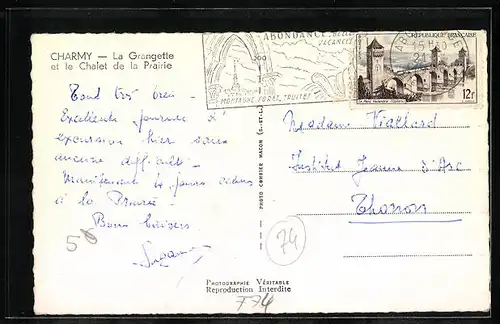 CHARMY — La Grangette
et le Chalet de la Prairie
ABONDANCE
VACANCES
MONTAGNE FORET TRUITES
15H
RÉPUBLIQUE FRANÇAISE
12F
Tout très bien -
Excellente journée d'
excursion hier sans
aucune difficulté -
Maintenant jours calmes
à la Prairie -
Bons baisers
Suzanne
56
Madame Viallard
Institut Jeanne d'Arc
Thonon
74
PHOTO COMBIER MACON
PHOTOGRAPHIE VÉRITABLE
Reproduction Interdite
T74